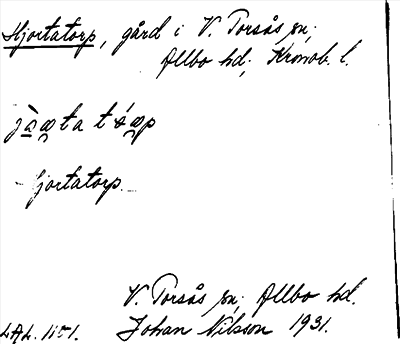 Hjortatorp, gård i V. Torsås sn,
Allbo hd, Kronob. l.
Hjortatorp
V. Torsås sn, Allbo hd.
Johan Nilsson 1931.